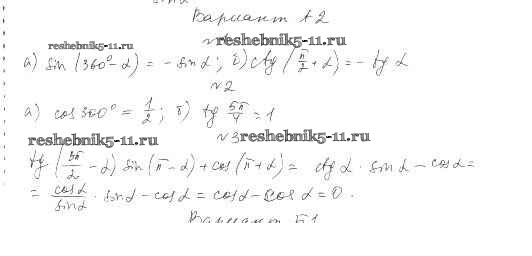 Вариант А2
№1 reshebnik5-11.ru
reshebnik5-11.ru
а) sin (360° - α) = - sin α; б) ctg (π/2 + α) = - tg α
№2
а) cos 300° = 1/2; б) tg 5π/4 = 1
reshebnik5-11.ru №3 reshebnik5-11.ru
tg (3π/2 - α) sin (π - α) + cos (π + α) = ctg α · sin α - cos α =
= cos α/sin α · sin α - cos α = cos α - cos α = 0.
Вариант Б1